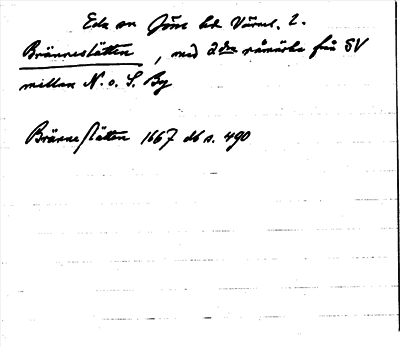 Eda sn Jösse hd Värml. l.
Brännestätten, med 2dra råmärke från SV
mellan N. o. S. By
Bränne stätten 1667 db s. 490